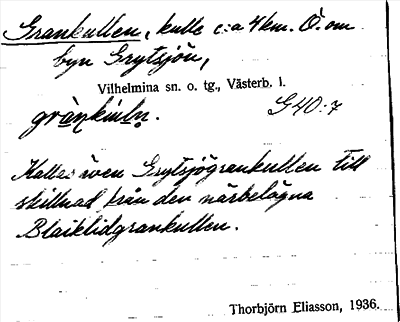 Grankullen, kulle c:a 4 km. Ö. om
byn Grytsjön,
Vilhelmina sn. o. tg., Västerb. l.
G40:7
Kallas även Grytsjögrankullen till
skillnad från den närbelägna
Blaiklidgrankullen.
Thorbjörn Eliasson, 1936.